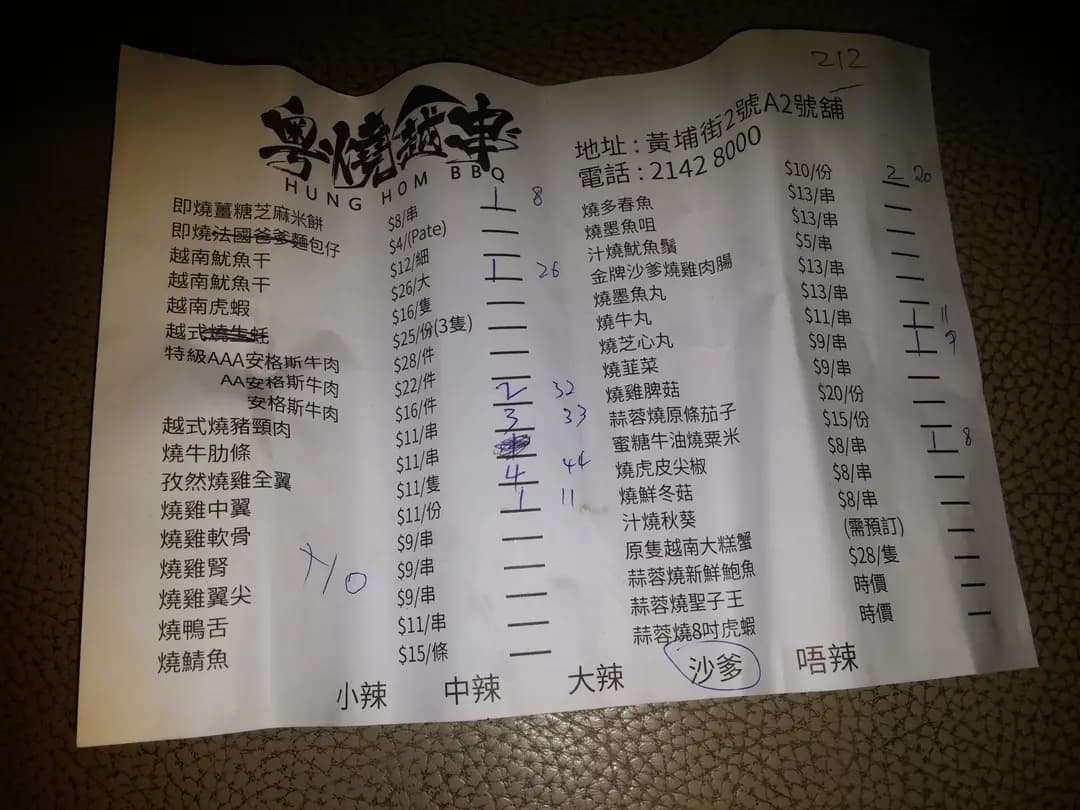 212
粵燒越串
HUNG HOM BBQ
地址：黃埔街2號A2號舖
電話：2142 8000
即燒薑糖芝麻米餅 $8/串 1 8
即燒法國爸爹麵包仔 $4/(Pate)
越南魷魚干 $12/細
越南魷魚干 $26/大 1 26
越南虎蝦 $16/隻
越式燒生蚝 $25/份(3隻)
特級AAA安格斯牛肉 $28/件
AA安格斯牛肉 $22/件
安格斯牛肉 $16/件 2 32
越式燒豬頸肉 $11/串 3 33
燒牛肋條 $11/串
孜然燒雞全翼 $11/隻 4 44
燒雞中翼 $11/份 1 11
燒雞軟骨 $9/串
燒雞腎 $9/串
燒雞翼尖 $9/串
燒鴨舌 $11/串
燒鯖魚 $15/條
燒多春魚 $10/份 2 20
燒墨魚咀 $13/串
汁燒魷魚鬚 $13/串
金牌沙爹燒雞肉腸 $5/串
燒墨魚丸 $13/串
燒牛丸 $13/串
燒芝心丸 $11/串 1 11
燒韮菜 $9/串 1 9
燒雞脾菇 $9/串
蒜蓉燒原條茄子 $20/份
蜜糖牛油燒粟米 $15/份
燒虎皮尖椒 $8/串 1 8
燒鮮冬菇 $8/串
汁燒秋葵 $8/串
原隻越南大糕蟹 (需預訂)
蒜蓉燒新鮮鮑魚 $28/隻
蒜蓉燒聖子王 時價
蒜蓉燒8吋虎蝦 時價
小辣 中辣 大辣 沙爹 唔辣